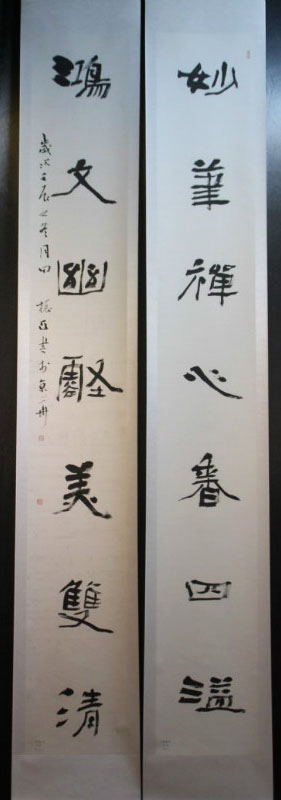 妙筆禪心香四溢
鴻文幽壑美雙清
歲次壬辰之冬月 書於京